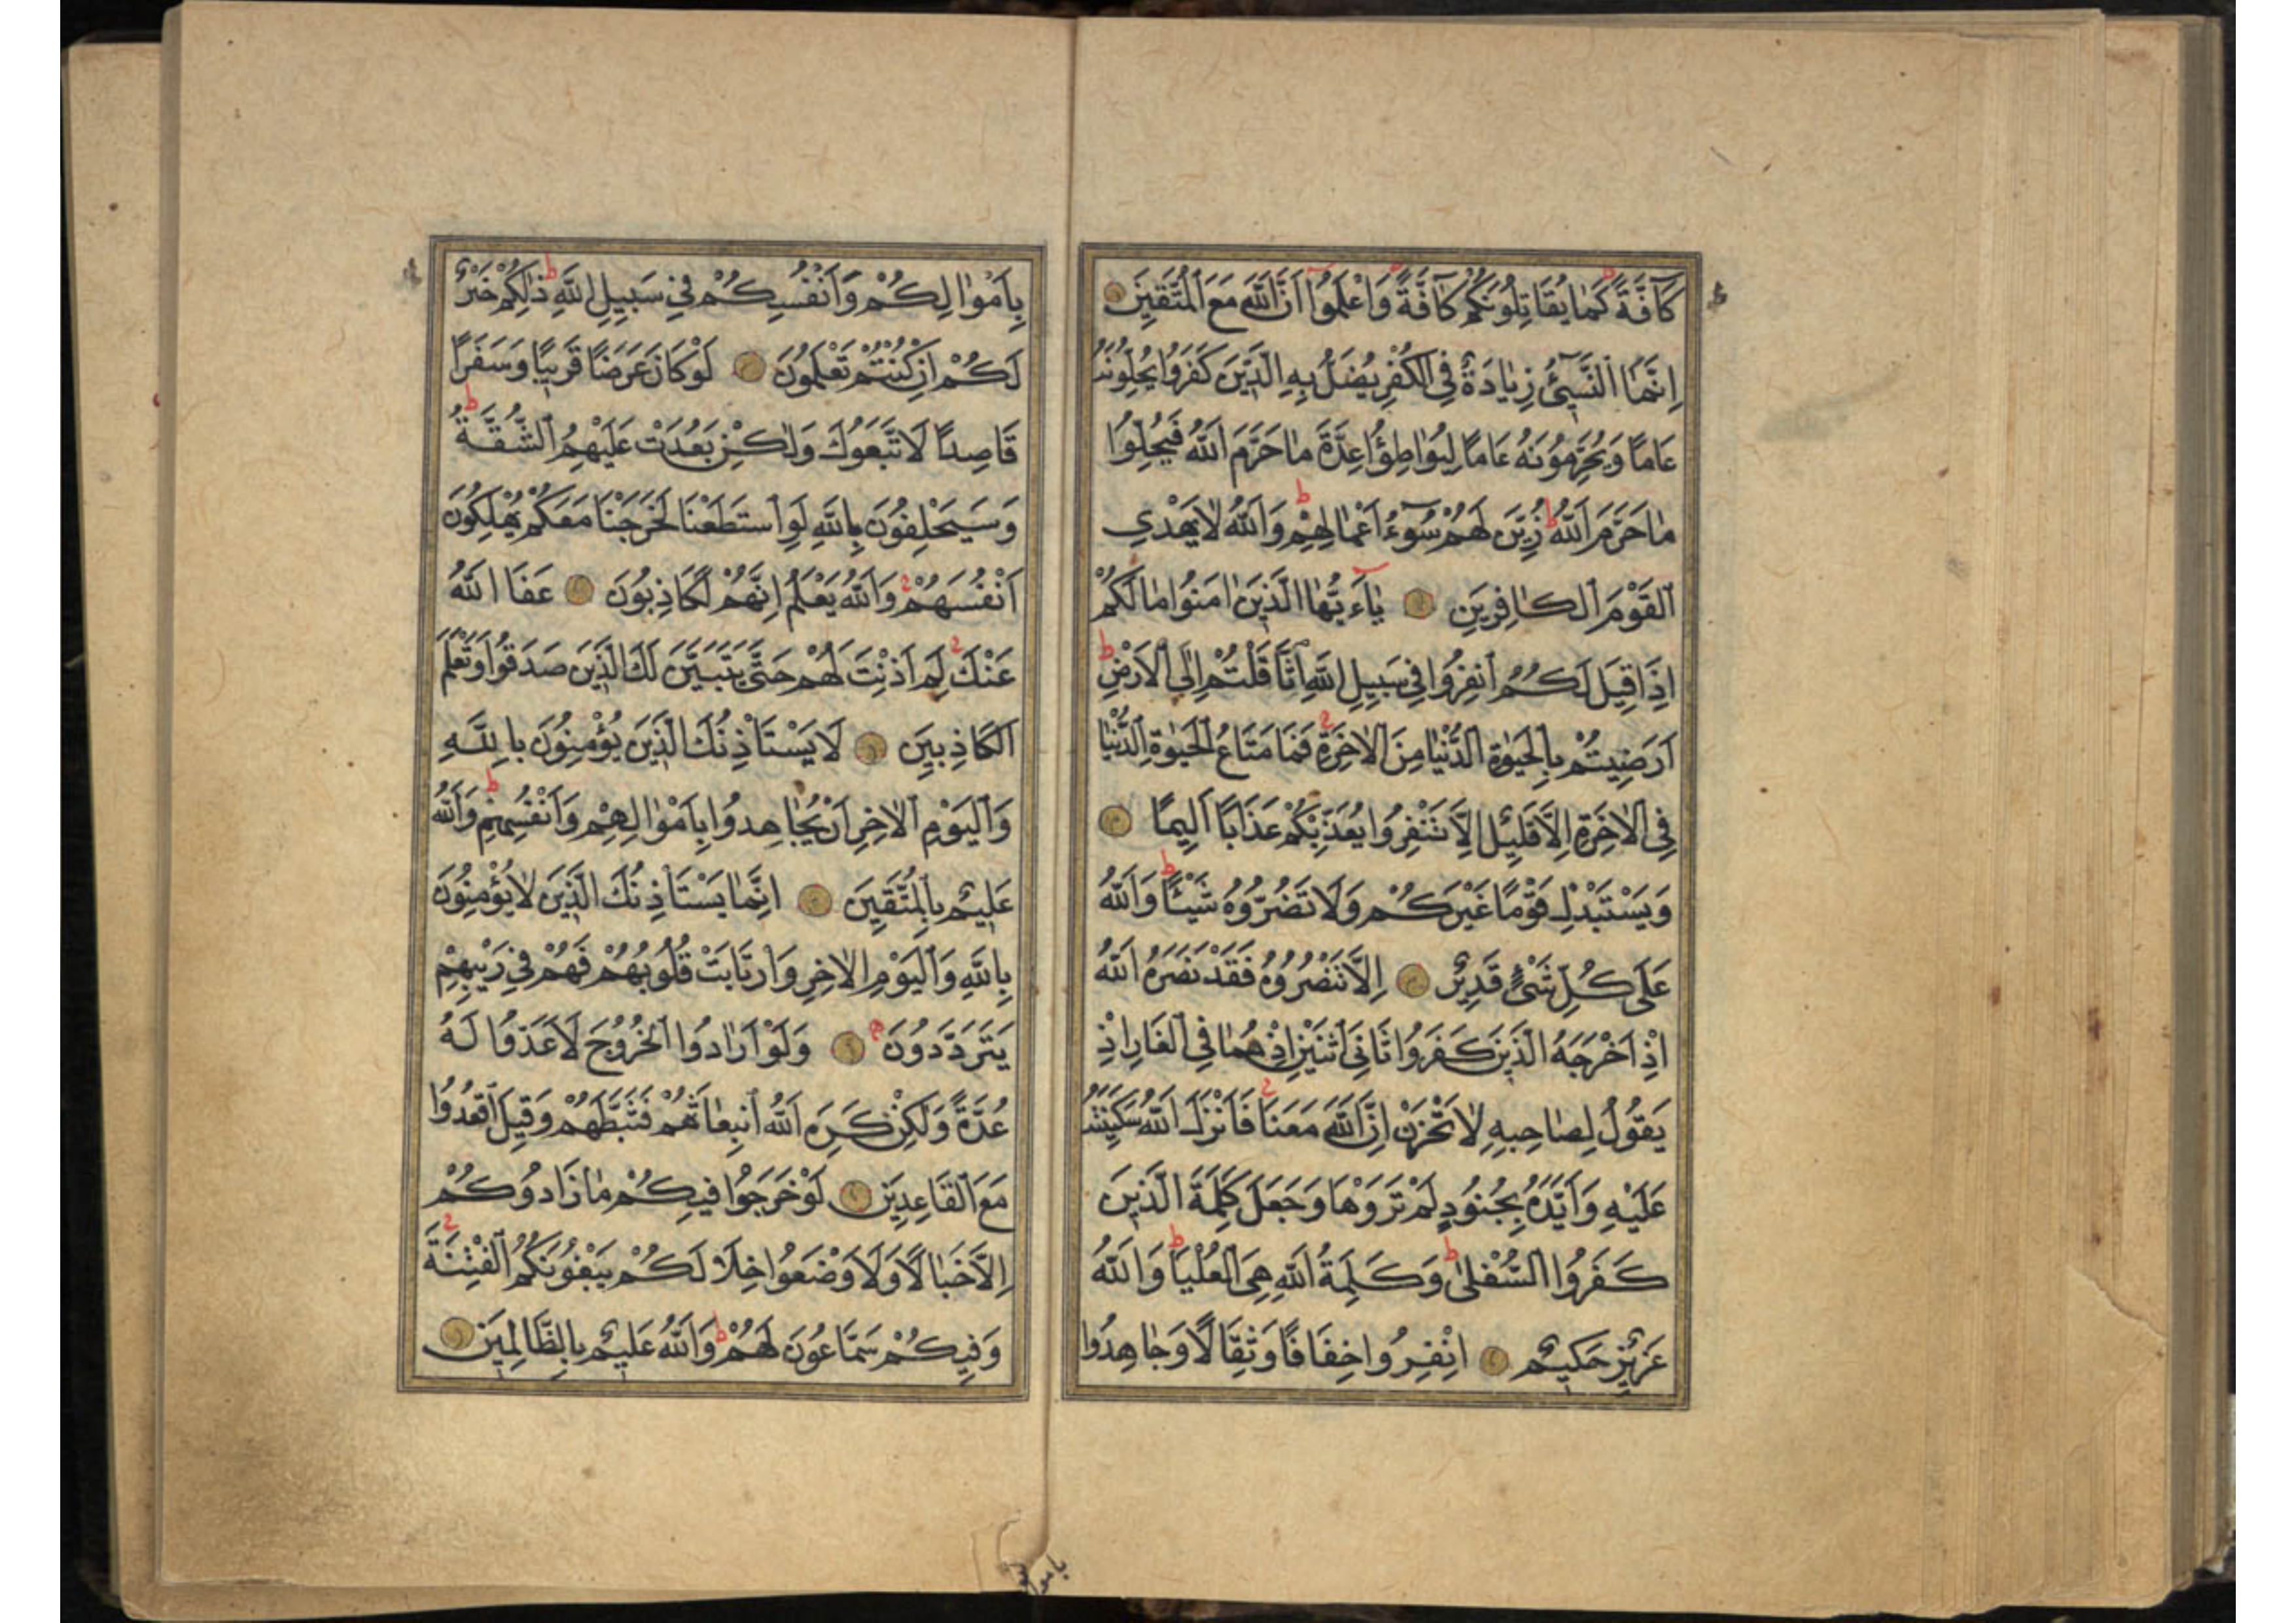 كَآفَّةً كَمٰا يُقَاتِلُونَكُمْ كٰآفَّةً وَاعْلَمُوٓا اَنَّ اللّٰهَ مَعَ الْمُتَّقٖينَ
اِنَّمَا النَّسٖٓئُ زِيٰادَةٌ فِي الْكُفْرِ يُضَلُّ بِهِ الَّذٖينَ كَفَرُوا يُحِلُّونَهُ
عَامًا وَيُحَرِّمُونَهُ عَامًا لِيُوٰاطِؤُا عِدَّةَ مٰا حَرَّمَ اللّٰهُ فَيُحِلُّوا
مٰا حَرَّمَ اللّٰهُ ط زُيِّنَ لَهُمْ سُوٓءُ اَعْمٰالِهِمْ ط وَاللّٰهُ لٰا يَهْدِي
الْقَوْمَ الْكٰافِرٖينَ يٰٓاءَيُّهَا الَّذٖينَ اٰمَنُوا مٰا لَكُمْ
اِذَا قٖيلَ لَكُمُ انْفِرُوا فٖي سَبٖيلِ اللّٰهِ اثَّا قَلْتُمْ اِلَى الْاَرْضِ ط
اَرَضٖيتُمْ بِالْحَيٰوةِ الدُّنْيٰا مِنَ الْاٰخِرَةِ فَمَا مَتَاعُ الْحَيٰوةِ الدُّنْيٰا
فِي الْاٰخِرَةِ اِلَّا قَلٖيلٌ اِلَّا تَنْفِرُوا يُعَذِّبْكُمْ عَذَابًا اَلٖيمًا
وَيَسْتَبْدِلْ قَوْمًا غَيْرَكُمْ وَلَا تَضُرُّوهُ شَيْـًٔا ط وَاللّٰهُ
عَلٰى كُلِّ شَيْءٍ قَدٖيرٌ اِلَّا تَنْصُرُوهُ فَقَدْ نَصَرَهُ اللّٰهُ
اِذْ اَخْرَجَهُ الَّذٖينَ كَفَرُوا ثَانِيَ اثْنَيْنِ اِذْ هُمٰا فِي الْغَارِ اِذْ
يَقُولُ لِصٰاحِبِهِ لٰا تَحْزَنْ اِنَّ اللّٰهَ مَعَنٰا فَاَنْزَلَ اللّٰهُ سَكٖينَتَهُ
عَلَيْهِ وَاَيَّدَهُ بِجُنُودٍ لَمْ تَرَوْهَا وَجَعَلَ كَلِمَةَ الَّذٖينَ
كَفَرُوا السُّفْلٰى ط وَكَلِمَةُ اللّٰهِ هِيَ الْعُلْيَا ط وَاللّٰهُ
عَزٖيزٌ حَكٖيمٌ اِنْفِرُوا خِفَافًا وَثِقَالًا وَجٰاهِدُوا
بِاَمْوٰالِكُمْ وَاَنْفُسِكُمْ فٖي سَبٖيلِ اللّٰهِ ط ذٰلِكُمْ خَيْرٌ
لَكُمْ اِنْ كُنْتُمْ تَعْلَمُونَ لَوْ كَانَ عَرَضًا قَرٖيبًا وَسَفَرًا
قَاصِدًا لَاتَّبَعُوكَ وَلٰكِنْ بَعُدَتْ عَلَيْهِمُ الشُّقَّةُ ط
وَسَيَحْلِفُونَ بِاللّٰهِ لَوِ اسْتَطَعْنَا لَخَرَجْنَا مَعَكُمْ يُهْلِكُونَ
اَنْفُسَهُمْ وَاللّٰهُ يَعْلَمُ اِنَّهُمْ لَكَاذِبُونَ عَفَا اللّٰهُ
عَنْكَ لِمَ اَذِنْتَ لَهُمْ حَتّٰى يَتَبَيَّنَ لَكَ الَّذٖينَ صَدَقُوا وَتَعْلَمَ
الْكَاذِبٖينَ لَا يَسْتَاْذِنُكَ الَّذٖينَ يُؤْمِنُونَ بِاللّٰهِ
وَالْيَوْمِ الْاٰخِرِ اَنْ يُجٰاهِدُوا بِاَمْوٰالِهِمْ وَاَنْفُسِهِمْ ط وَاللّٰهُ
عَلٖيمٌ بِالْمُتَّقٖينَ اِنَّمٰا يَسْتَاْذِنُكَ الَّذٖينَ لٰا يُؤْمِنُونَ
بِاللّٰهِ وَالْيَوْمِ الْاٰخِرِ وَارْتَابَتْ قُلُوبُهُمْ فَهُمْ فٖي رَيْبِهِمْ
يَتَرَدَّدُونَ وَلَوْ اَرٰادُوا الْخُرُوجَ لَاَعَدُّوا لَهُ
عُدَّةً وَلٰكِنْ كَرِهَ اللّٰهُ انْبِعٰاثَهُمْ فَثَبَّطَهُمْ وَقٖيلَ اقْعُدُوا
مَعَ الْقَاعِدٖينَ لَوْ خَرَجُوا فٖيكُمْ مٰا زَادُوكُمْ
اِلَّا خَبٰالًا وَلَاَوْضَعُوا خِلَالَكُمْ يَبْغُونَكُمُ الْفِتْنَةَ
وَفٖيكُمْ سَمَّاعُونَ لَهُمْ ط وَاللّٰهُ عَلٖيمٌ بِالظَّالِمٖينَ